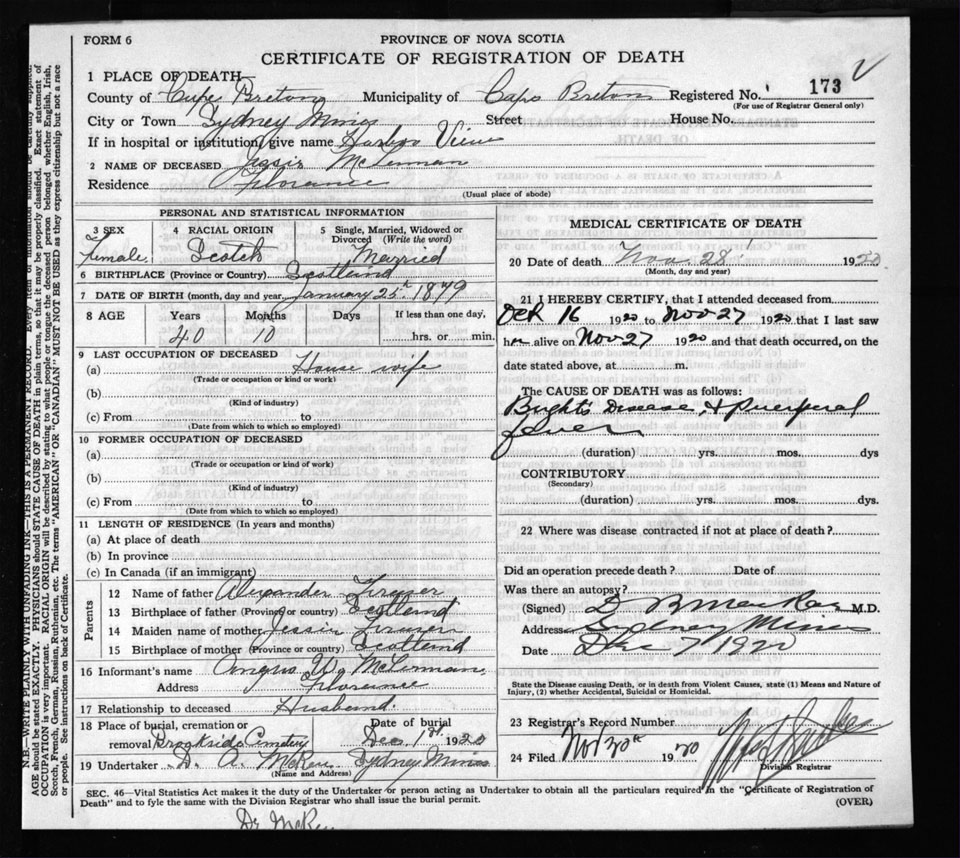 FORM 6
PROVINCE OF NOVA SCOTIA
CERTIFICATE OF REGISTRATION OF DEATH
1 PLACE OF DEATH
County of Cape Breton Municipality of Cape Breton Registered No. 173
(For use of Registrar General only)
City or Town Sydney Mines Street House No.
If in hospital or institution, give name Harbor View
2 NAME OF DECEASED Jessie McLennan
Residence Florance
(Usual place of abode)
PERSONAL AND STATISTICAL INFORMATION
3 SEX 4 RACIAL ORIGIN 5 Single, Married, Widowed or
Divorced (Write the word)
Female. Scotch Married
6 BIRTHPLACE (Province or Country) Scotland
7 DATE OF BIRTH (month, day and year) January 25th 1879
8 AGE Years Months Days If less than one day,
40 10 hrs. or min.
9 LAST OCCUPATION OF DECEASED
(a) House wife
(Trade or occupation or kind or work)
(b)
(Kind of industry)
(c) From to
(Date from which to which so employed)
10 FORMER OCCUPATION OF DECEASED
(a)
(Trade or occupation or kind of work)
(b)
(Kind of industry)
(c) From to
(Date from which to which so employed)
11 LENGTH OF RESIDENCE (In years and months)
(a) At place of death
(b) In province
(c) In Canada (if an immigrant)
Parents
12 Name of father Alexander Fraser
13 Birthplace of father (Province or country) Scotland
14 Maiden name of mother Jessie Fraser
15 Birthplace of mother (Province or country) Scotland
16 Informant's name Angus W. McLennan
Address Florance
17 Relationship to deceased Husband.
18 Place of burial, cremation or Date of burial
removal Brookside Cemetery Dec 1st. 1920
19 Undertaker D. A. McRae Sydney Mines
(Name and Address)
MEDICAL CERTIFICATE OF DEATH
20 Date of death Nov. 28 1920
(Month, day and year)
21 I HEREBY CERTIFY, that I attended deceased from
16 1920 to Nov 27 1920 that I last saw
her alive on Nov 27 1920 and that death occurred, on the
date stated above, at m.
The CAUSE OF DEATH was as follows:
Brights Disease, & Puerperal
fever
(duration) yrs. mos. dys
CONTRIBUTORY
(Secondary)
(duration) yrs. mos. dys.
22 Where was disease contracted if not at place of death?
Did an operation precede death? Date of
Was there an autopsy?
(Signed) M.D.
Address Sydney Mines
Date Dec 7 1920
State the Disease causing Death, or in death from Violent Causes, state (1) Means and Nature of
Injury, (2) whether Accidental, Suicidal or Homicidal.
23 Registrar's Record Number
24 Filed Nov 30th 1920
Division Registrar
SEC. 46—Vital Statistics Act makes it the duty of the Undertaker or person acting as Undertaker to obtain all the particulars required in the "Certificate of Registration of
Death" and to fyle the same with the Division Registrar who shall issue the burial permit. (OVER)
Dr McRae
N.B.—WRITE PLAINLY WITH UNFADING INK—THIS IS A PERMANENT RECORD. Every item of information should be carefully supplied.
AGE should be stated EXACTLY. PHYSICIANS should STATE CAUSE OF DEATH in plain terms, so that it may be properly classified. Exact statement of
OCCUPATION is very important. RACIAL ORIGIN will be described by stating to what people or tongue the deceased person belonged, whether English, Irish,
Scotch, French, German, Russian, Ruthenian, etc. The terms "AMERICAN" OR "CANADIAN" MUST NOT BE USED as they express citizenship but not a race
or people. See instructions on back of Certificate.